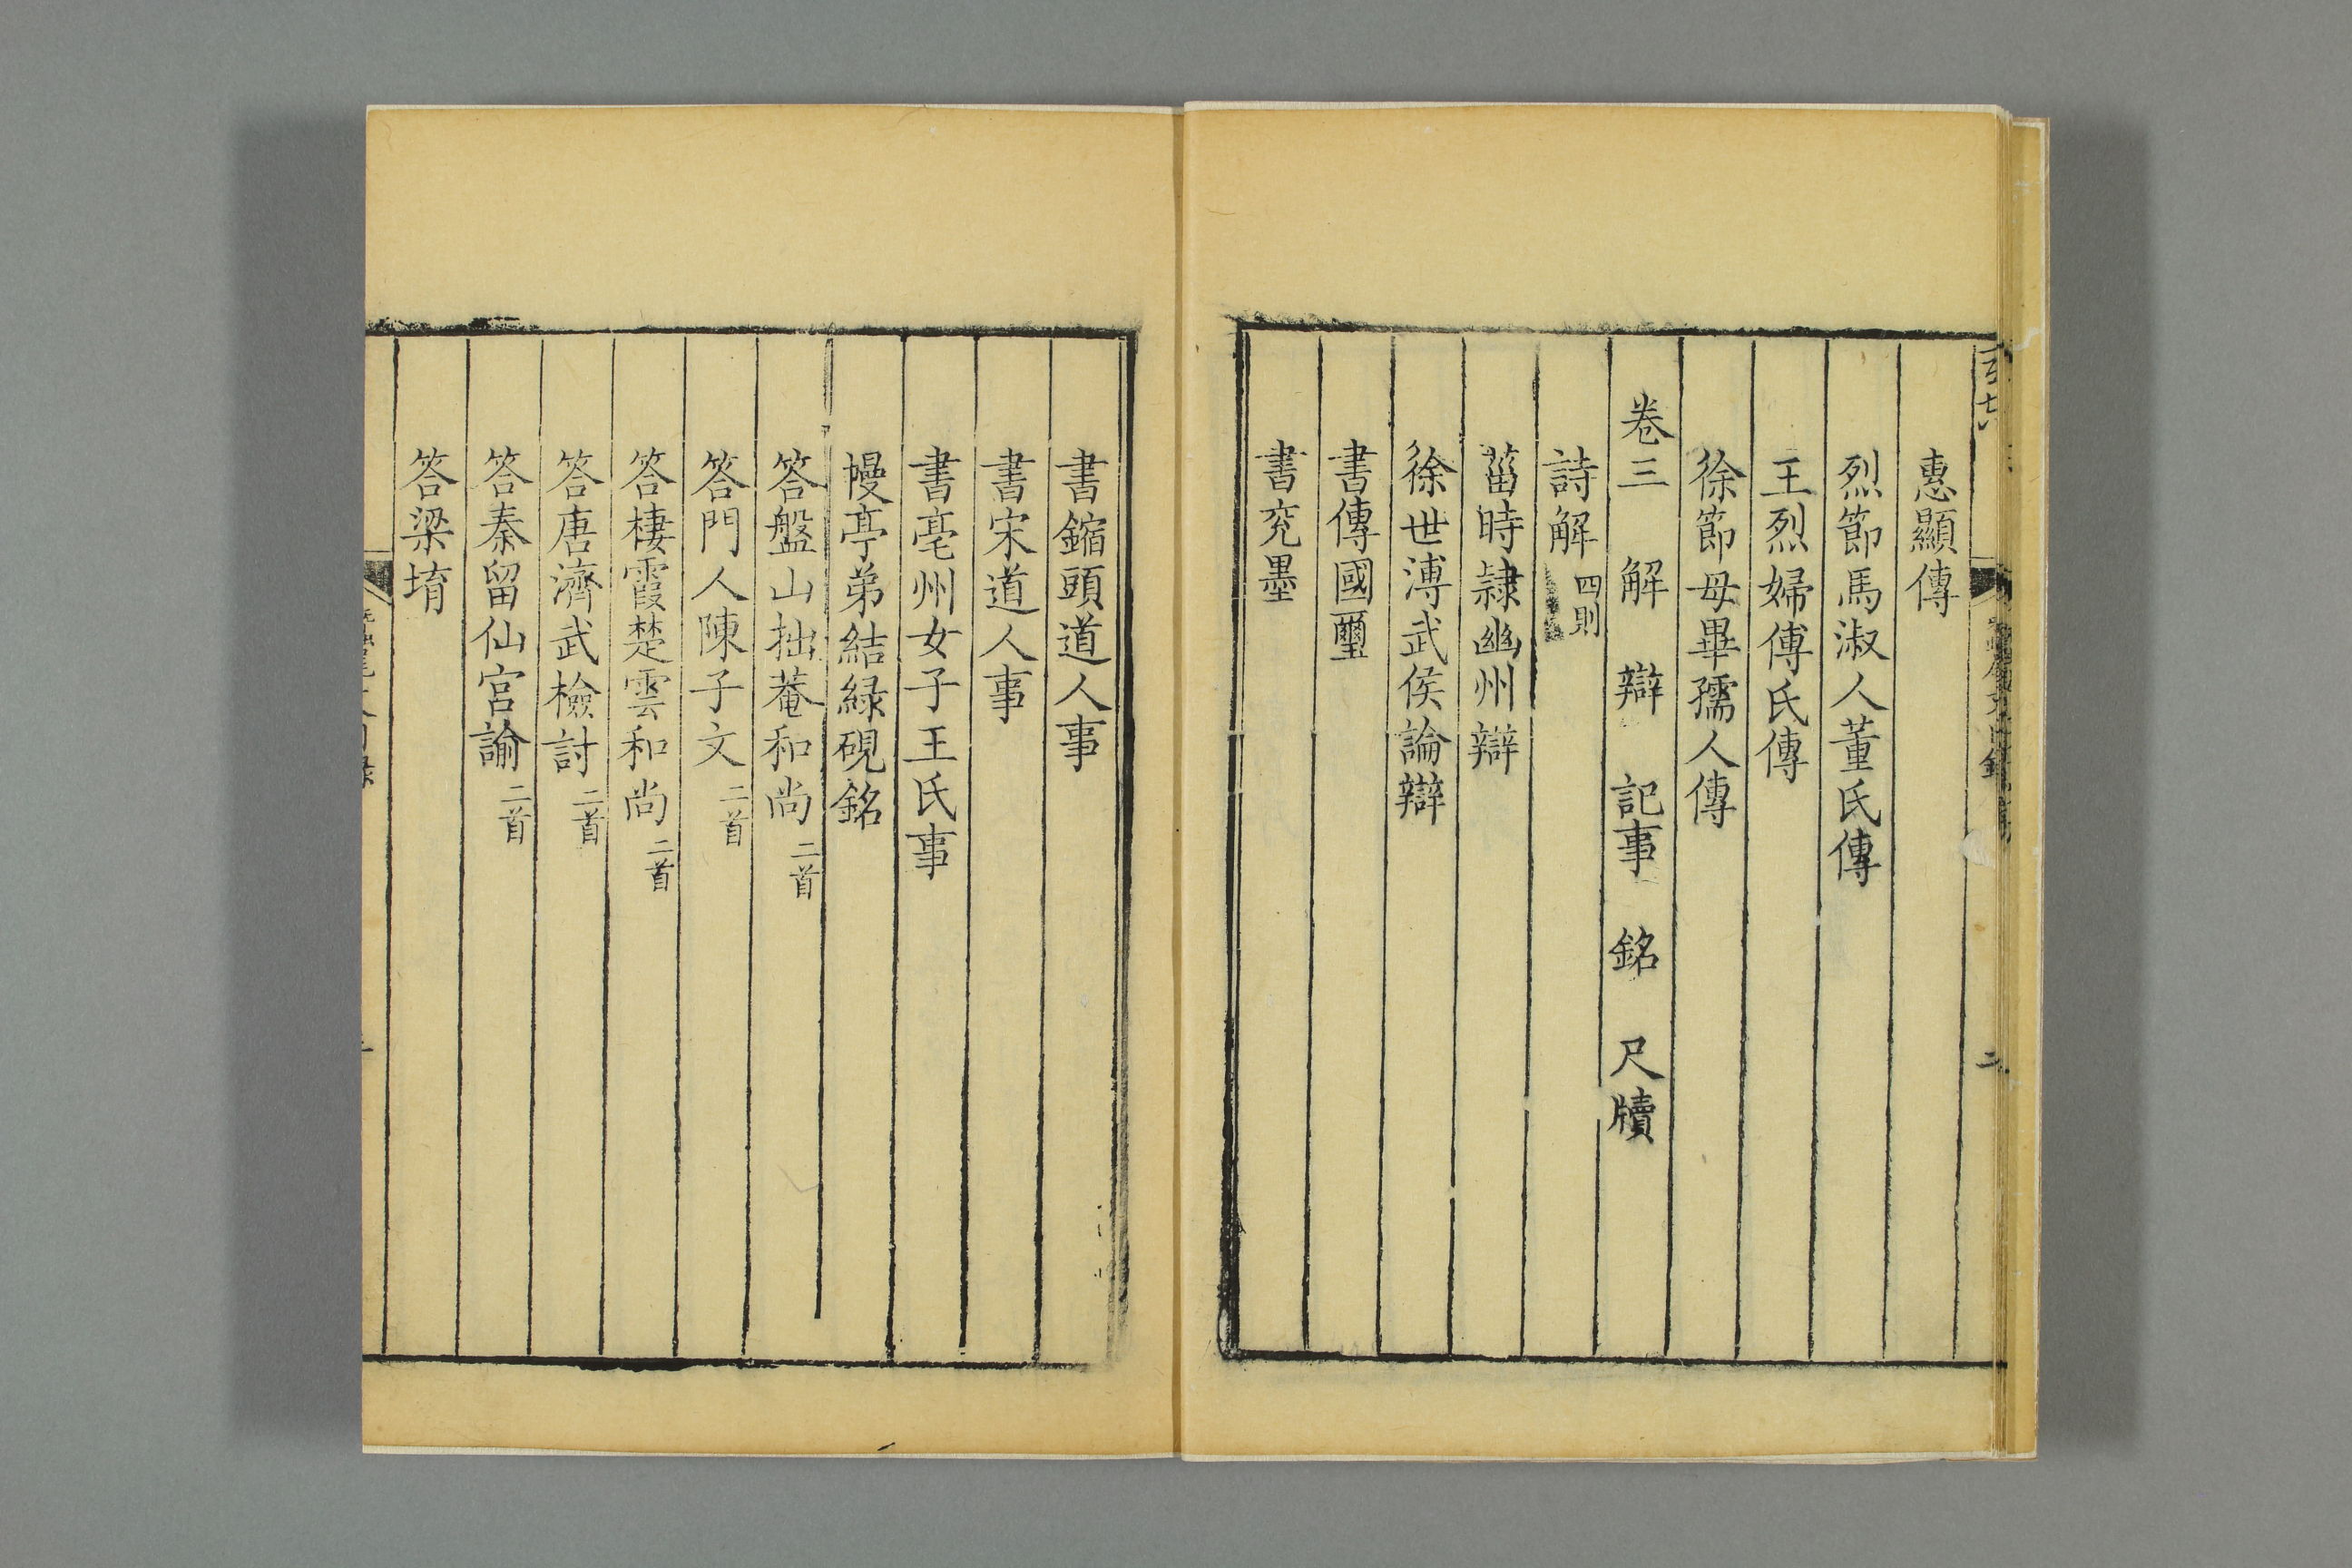 惠顯傳
烈節馬淑人董氏傳
王烈婦傅氏傳
徐節母畢孺人傳
卷三 解 辯 記事 銘 尺牘
詩解 四則
菑時隷幽州辯
徐世溥武侯論辯
書傳國璽
書兖墨
二
書鏥頭道人事
書宋道人事
書亳州女子王氏事
幔亭弟結緑硯銘
答盤山拙菴和尚 二首
答門人陳子文 二首
答棲霞楚雲和尚 二首
答唐濟武檢討 二首
答秦留仙宫諭 二首
答梁堉